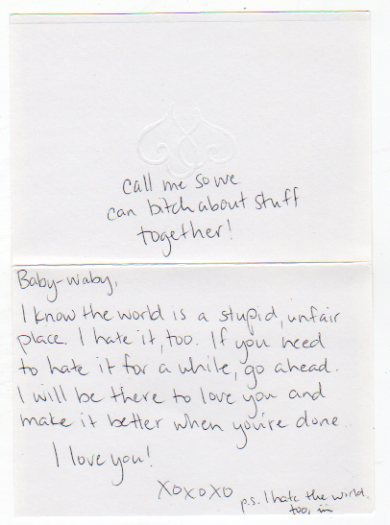 call me so we
can bitch about stuff
together!
Baby-waby,
I know the world is a stupid, unfair
place. I hate it, too. If you need
to hate it for a while, go ahead.
I will be there to love you and
make it better when you're done.
I love you!
XOXOXO
p.s. I hate the world,
too,